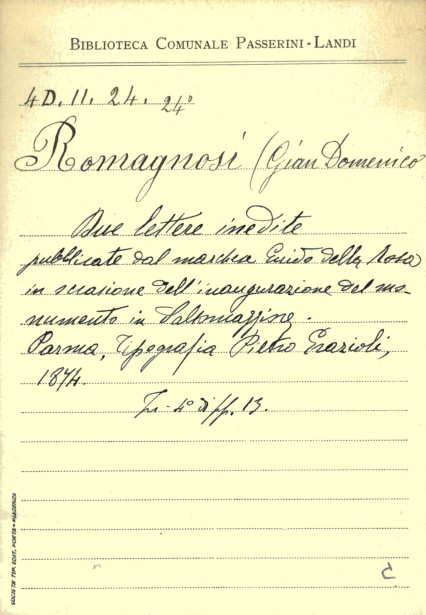 BIBLIOTECA COMUNALE PASSERINI-LANDI
4D.11.24. 24º
Romagnosi (Gian Domenico
Due lettere inedite
pubblicate dal marchese Guido della Rosa
in occasione dell'inaugurazione del mo-
numento in Salsomaggiore.
Parma, Tipografia Pietro Grazioli,
1874.
4º di pp. 13.
SOCIETÀ TIP. EDIT. PORTA - PIACENZA